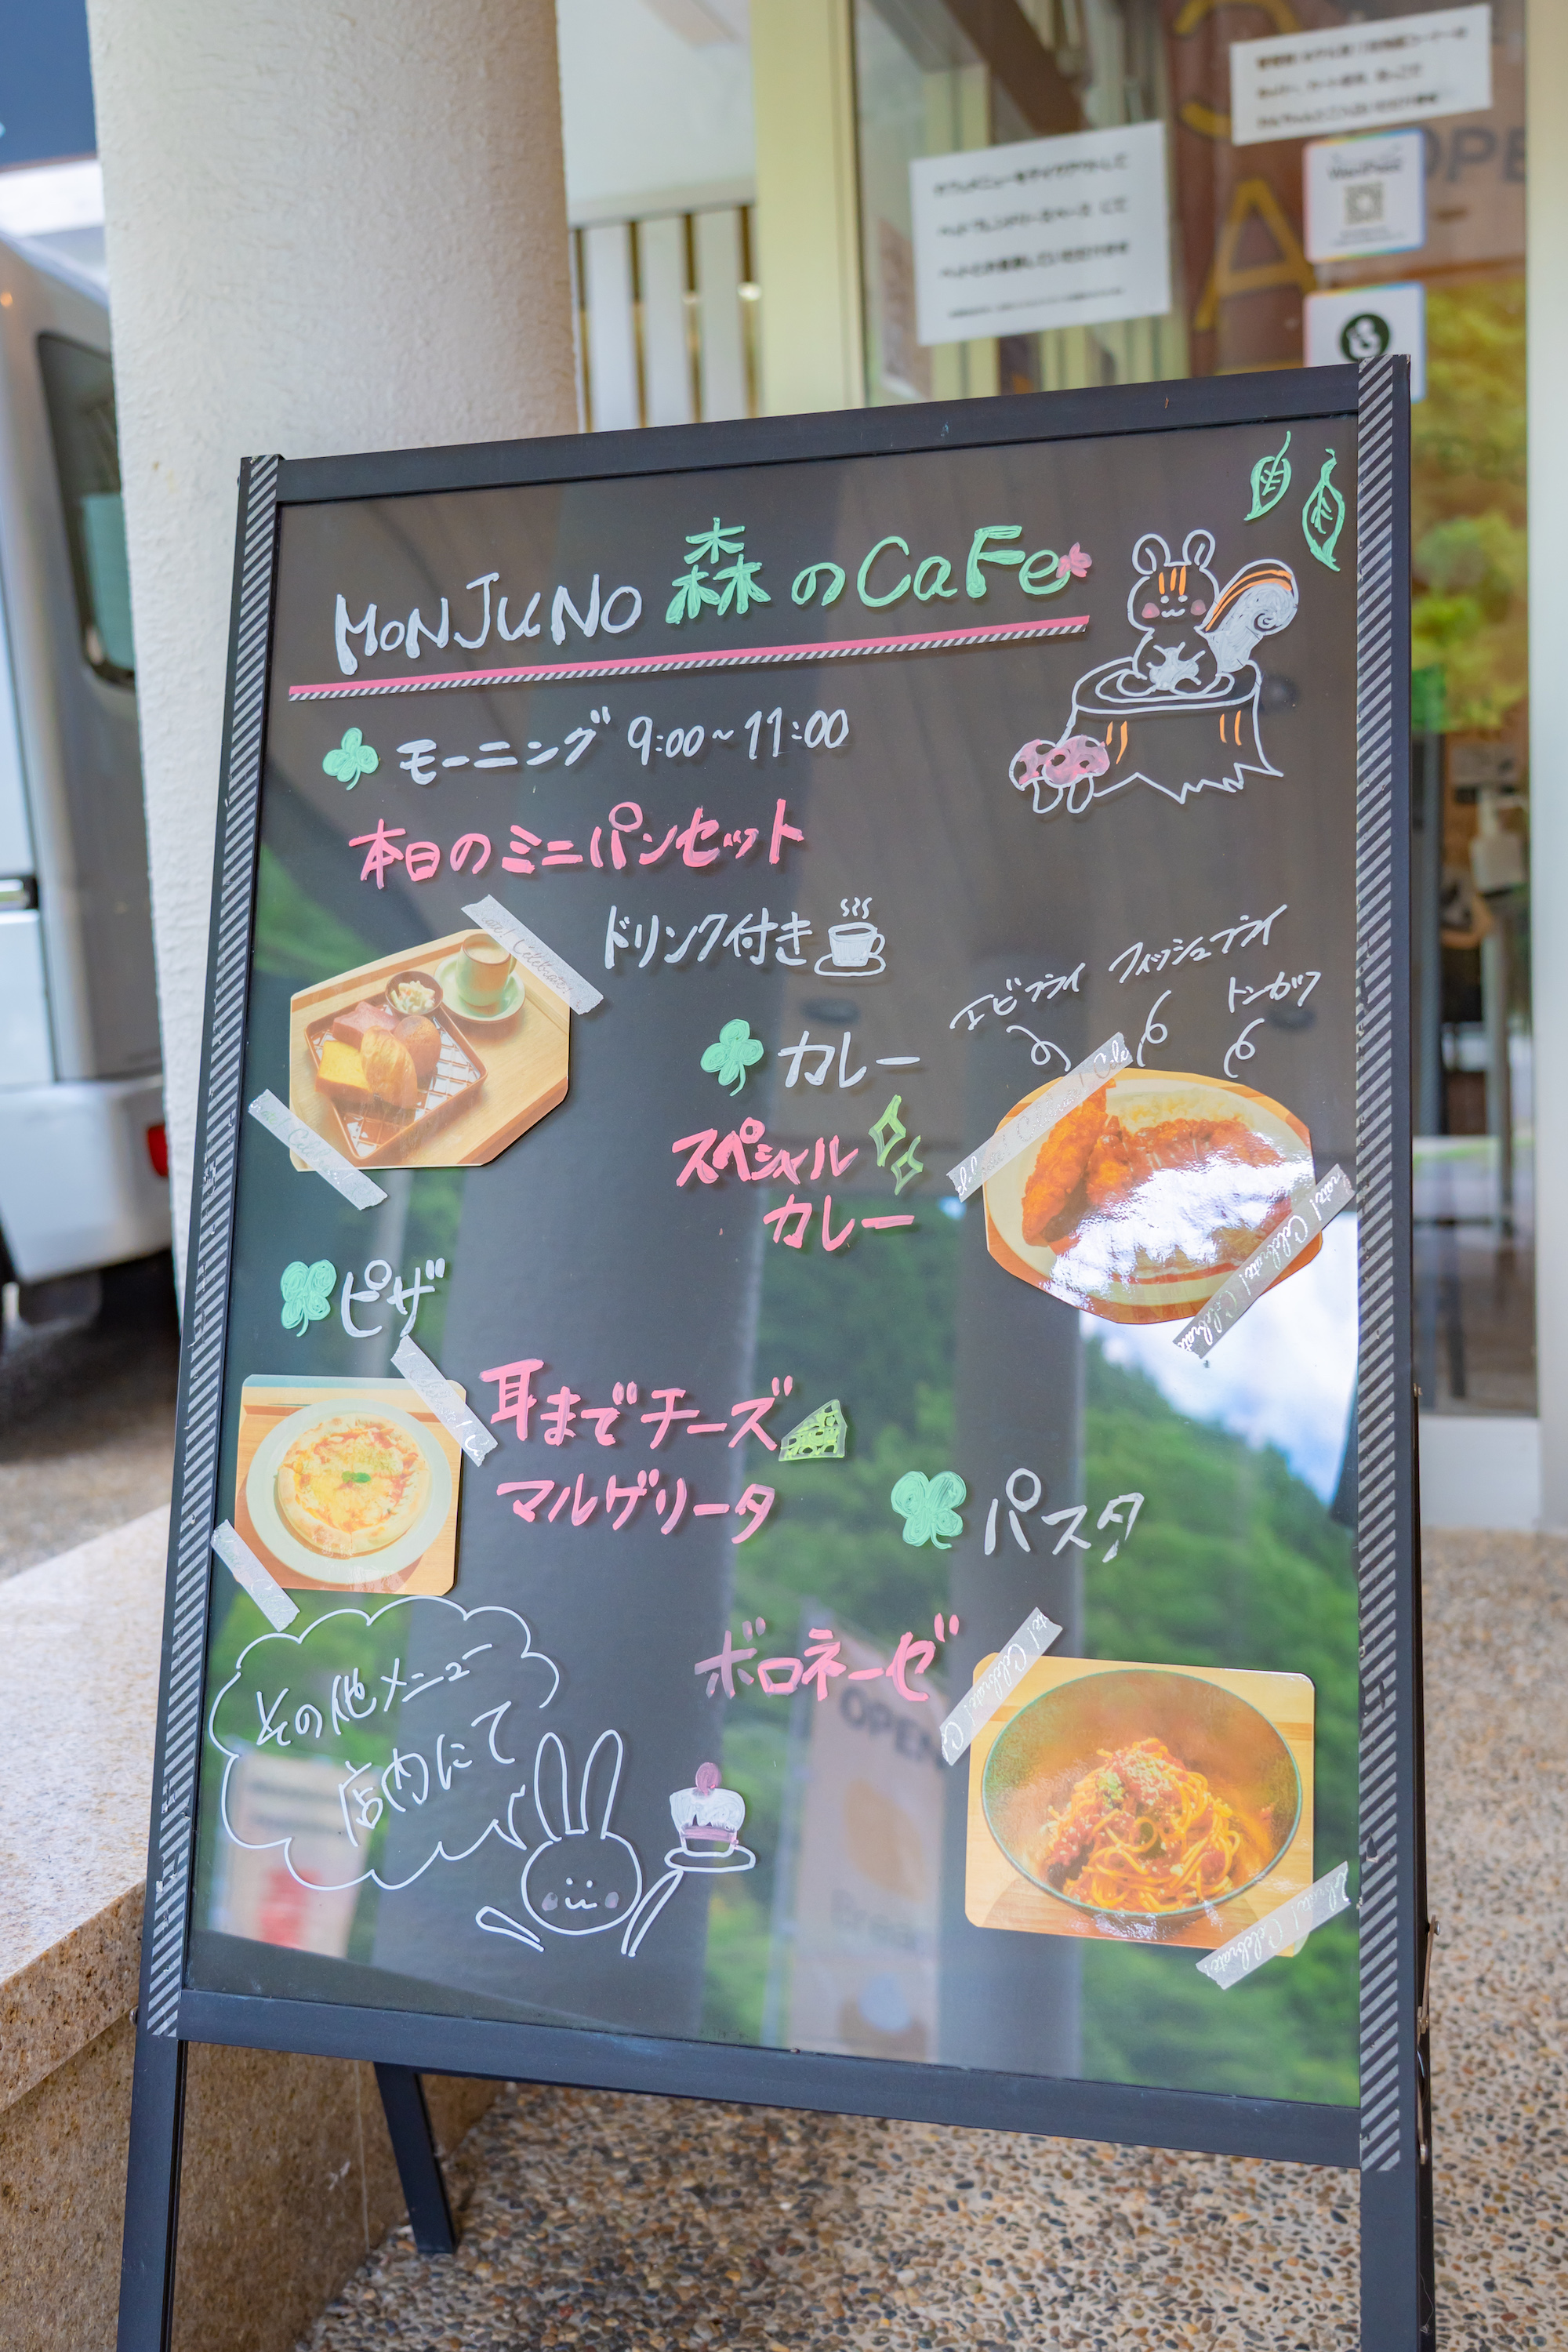 OPEN
MONJUNO 森のCaFe
モーニング 9:00~11:00
本日のミニパンセット
ドリンク付き
エビフライ フィッシュフライ トンカツ
カレー
スペシャル
カレー
ピザ
耳までチーズ
マルゲリータ
パスタ
ボロネーゼ
その他メニュー
店内にて
OPEN
Celebrate!
Celebrate!
Celebrate!